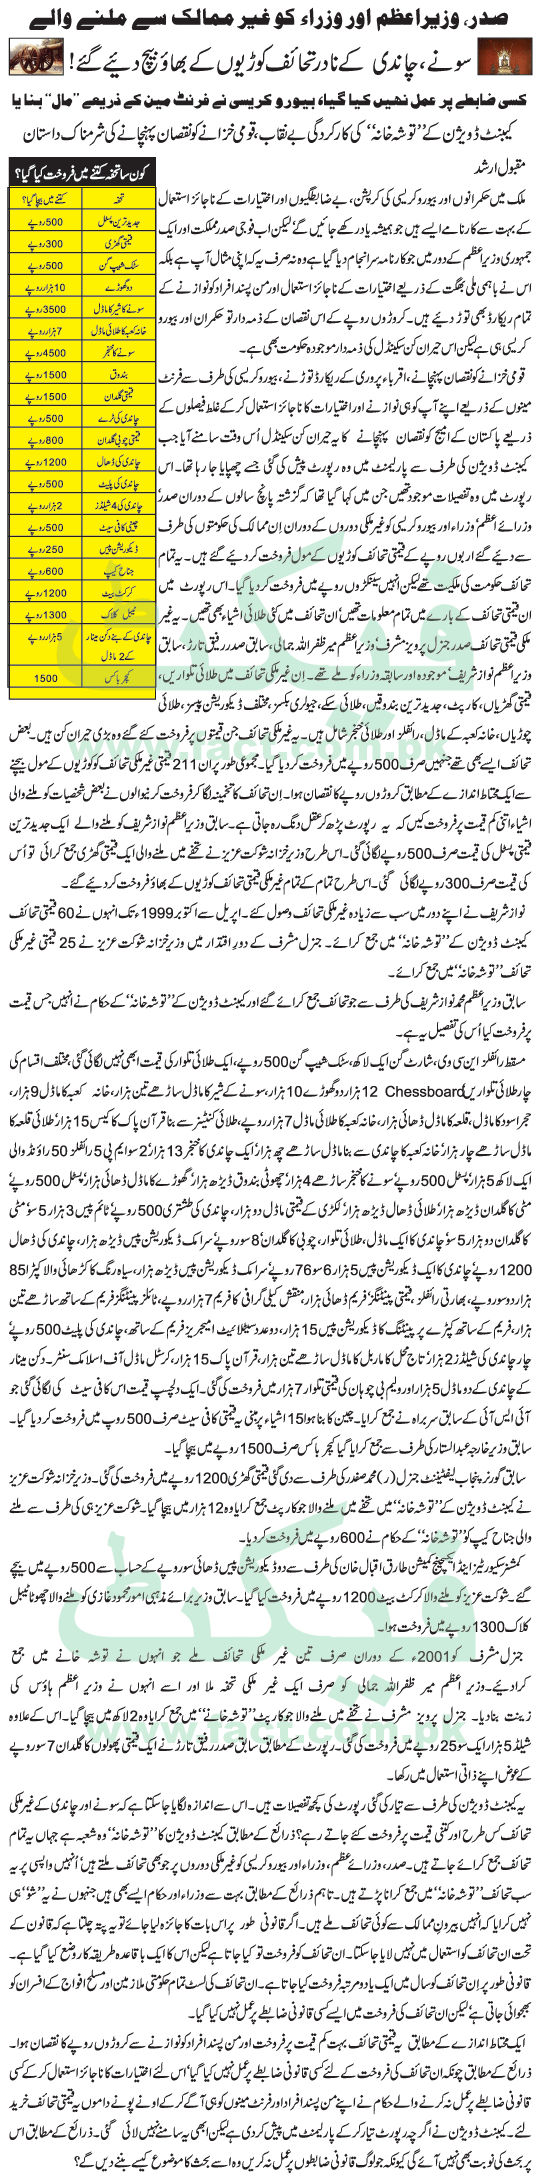 صدر، وزیراعظم اور وزراء کو غیر ممالک سے ملنے والے
سونے، چاندی کے نادر تحائف کوڑیوں کے بھاؤ بیچ دیئے گئے!
کسی ضابطے پر عمل نہیں کیا گیا، بیورو کریسی نے فرنٹ مین کے ذریعے ’’مال‘‘ بنایا
کیبنٹ ڈویژن کے ’’توشہ خانہ‘‘ کی کارکردگی بے نقاب، قومی خزانے کو نقصان پہنچانے کی شرمناک داستان
مقبول ارشد
کون سا تحفہ کتنے میں فروخت کیا گیا؟
تحفہ کتنے میں بیچا گیا؟
جدید ترین پسٹل 500 روپے
قیمتی گھڑی 300 روپے
سٹک شیپ گن 500 روپے
دو گھوڑے 10 ہزار روپے
سونے کا شیر کا ماڈل 3500 روپے
خانہ کعبہ کا طلائی ماڈل 7 ہزار روپے
سونے کا خنجر 4500 روپے
بندوق 1500 روپے
قیمتی گلدان 1500 روپے
چاندی کی ٹرے 500 روپے
قیمتی چوبی گلدان 800 روپے
چاندی کی ڈھال 1200 روپے
چاندی کی پلیٹ 500 روپے
چاندی کی 4 شیلڈز 2 ہزار روپے
چینی کافی سیٹ 500 روپے
ڈیکوریشن پیس 250 روپے
جناح کیپ 600 روپے
کرکٹ بیٹ 1200 روپے
ٹیبل کلاک 1300 روپے
چاندی کے بنے دکن مینار 5 ہزار روپے
کے 2 ماڈل
کیچر باکس 1500
ملک میں حکمرانوں اور بیوروکریسی کی کرپشن، بے ضابطگیوں اور اختیارات کے ناجائز استعمال
کے بہت سے کارنامے ایسے ہیں جو ہمیشہ یاد رکھے جائیں گے لیکن اب فوجی صدر مملکت اور ایک
جمہوری وزیراعظم کے دور میں جو کارنامہ سرانجام دیا گیا ہے وہ نہ صرف یہ کہ اپنی مثال آپ ہے بلکہ
اس نے باہمی ملی بھگت کے ذریعے اختیارات کے ناجائز استعمال اور من پسند افراد کو نوازنے کے
تمام ریکارڈ بھی توڑ دیئے ہیں۔ کروڑوں روپے کے اس نقصان کے ذمہ دار تو حکمران اور بیورو
کریسی ہی ہے لیکن اس حیران کن سکینڈل کی ذمہ دار موجودہ حکومت بھی ہے۔
قومی خزانے کو نقصان پہنچانے، اقرباء پروری کے ریکارڈ توڑنے، بیوروکریسی کی طرف سے فرنٹ
مینوں کے ذریعے اپنے آپ کو ہی نوازنے اور اختیارات کا ناجائز استعمال کر کے غلط فیصلوں کے
ذریعے پاکستان کے امیج کو نقصان پہنچانے کا یہ حیران کن سکینڈل اُس وقت سامنے آیا جب
کیبنٹ ڈویژن کی طرف سے پارلیمنٹ میں وہ رپورٹ پیش کی گئی جسے چھپایا جا رہا تھا۔ اس
رپورٹ میں وہ تفصیلات موجود تھیں جن میں کہا گیا تھا کہ گزشتہ پانچ سالوں کے دوران صدر،
وزرائے اعظم، وزراء اور بیوروکریسی کو غیر ملکی دوروں کے دوران اِن ممالک کی حکومتوں کی طرف
سے دیئے گئے اربوں روپے کے قیمتی تحائف کوڑیوں کے مول فروخت کر دیئے گئے ہیں۔ یہ تمام
تحائف حکومت کی ملکیت تھے لیکن انہیں سینکڑوں روپے میں فروخت کر دیا گیا۔ اس رپورٹ میں
ان قیمتی تحائف کے بارے میں تمام معلومات تھیں، ان تحائف میں کئی طلائی اشیاء بھی تھیں۔ یہ غیر
ملکی قیمتی تحائف صدر جنرل پرویز مشرف، وزیراعظم میر ظفر اللہ جمالی، سابق صدر رفیق تارڑ، سابق
وزیراعظم نواز شریف، موجودہ اور سابقہ وزراء کو ملے تھے۔ اِن غیر ملکی تحائف میں طلائی تلواریں،
قیمتی گھڑیاں، کارپٹ، جدید ترین بندوقیں، طلائی سکے، جیولری بکسز، مختلف ڈیکوریشن پیسز، طلائی
چوڑیاں، خانہ کعبہ کے ماڈل، رائفلز اور طلائی خنجر شامل ہیں۔ یہ غیر ملکی تحائف جن قیمتوں پر فروخت کئے گئے وہ بڑی حیران کن ہیں۔ بعض
تحائف ایسے بھی تھے جنہیں صرف 500 روپے میں فروخت کر دیا گیا۔ مجموعی طور پر ان 211 قیمتی غیر ملکی تحائف کو کوڑیوں کے مول بیچنے
سے ایک محتاط اندازے کے مطابق کروڑوں روپے کا نقصان ہوا۔ اِن تحائف کا تخمینہ لگا کر فروخت کرنیوالوں نے بعض شخصیات کو ملنے والی
اشیاء اتنی کم قیمت پر فروخت کیں کہ یہ رپورٹ پڑھ کر عقل دنگ رہ جاتی ہے۔ سابق وزیراعظم نواز شریف کو ملنے والے ایک جدید ترین
قیمتی پسٹل کی قیمت صرف 500 روپے لگائی گئی۔ اس طرح وزیر خزانہ شوکت عزیز نے تحفے میں ملنے والی ایک قیمتی گھڑی جمع کرائی تو اُس
کی قیمت صرف 300 روپے لگائی گئی۔ اس طرح تمام کے تمام غیر ملکی قیمتی تحائف کوڑیوں کے بھاؤ فروخت کر دیئے گئے۔
نواز شریف نے اپنے دور میں سب سے زیادہ غیر ملکی تحائف وصول کئے۔ اپریل سے اکتوبر 1999ء تک انہوں نے 60 قیمتی تحائف
کیبنٹ ڈویژن کے ’’توشہ خانہ‘‘ میں جمع کرائے۔ جنرل مشرف کے دورِ اقتدار میں وزیر خزانہ شوکت عزیز نے 25 قیمتی غیر ملکی
تحائف ’’توشہ خانہ‘‘ میں جمع کرائے۔
سابق وزیراعظم محمد نواز شریف کی طرف سے جو تحائف جمع کرائے گئے اور کیبنٹ ڈویژن کے ’’توشہ خانہ‘‘ کے حکام نے انہیں جس قیمت
پر فروخت کیا اُس کی تفصیل یہ ہے۔
مسقط رائفلز این سی وی، شارٹ گن ایک لاکھ، سٹک شیپ گن 500 روپے، ایک طلائی تلوار کی قیمت ابھی نہیں لگائی گئی، مختلف اقسام کی
چار طلائی تلواریں، Chessboard 12 ہزار، دو گھوڑے 10 ہزار، سونے کے شیر کا ماڈل ساڑھے تین ہزار، خانہ کعبہ کا ماڈل 9 ہزار،
حجر اسود کا ماڈل، قلعہ کا ماڈل ڈھائی ہزار، خانہ کعبہ کا طلائی ماڈل 7 ہزار روپے، طلائی کنٹینر سے بنا قرآن پاک کا کیس 15 ہزار، طلائی قلعہ کا
ماڈل ساڑھے چار ہزار، خانہ کعبہ کا چاندی سے بنا ماڈل ساڑھے چھ ہزار، ایک چاندی کا خنجر 13 ہزار، 2 سو ایم پی 5 رائفلز 50 راؤنڈ والی
ایک لاکھ 5 ہزار، پسٹل 500 روپے، سونے کا خنجر ساڑھے 4 ہزار، چھوٹی بندوق ڈیڑھ ہزار، گھوڑے کا ماڈل ڈھائی ہزار، پسٹل 500 روپے،
مٹی کا گلدان ڈیڑھ ہزار، طلائی ڈھال ڈیڑھ ہزار، لکڑی کے قیمتی ماڈل دو ہزار، چاندی کی طشتری 500 روپے، ٹائم پیس 3 ہزار 5 سو، مٹی
کا گلدان دو ہزار 5 سو، چاندی کا ایک ماڈل، طلائی تلوار، چوبی کا گلدان، 8 سو روپے، سرامک ڈیکوریشن پیس ڈیڑھ ہزار، چاندی کی ڈھال
1200 روپے، چاندی کا ایک ڈیکوریشن پیس 5 ہزار 6 سو 76 روپے، سرامک ڈیکوریشن پیس ڈیڑھ ہزار، سیاہ رنگ کا کڑھائی والا کپڑا 85
ہزار دو سو روپے، بھارتی رائفلز، قیمتی پینٹنگز، فریم کے ساتھ ڈھائی ہزار، منقش کیلی گرافی کا فریم 7 ہزار روپے، ٹائلز پینٹنگز فریم کے ساتھ ساڑھے تین
ہزار، فریم کے ساتھ کپڑے پر پینٹنگ کا ڈیکوریشن پیس 15 ہزار، دو عدد سیٹلائیٹ امیجریز فریم کے ساتھ، چاندی کی پلیٹ 500 روپے،
چار چاندی کی شیلڈز 2 ہزار، تاج محل کا ماربل کا ماڈل ساڑھے تین ہزار، قرآن پاک 15 ہزار، کرسٹل ماڈل آف اسلامک سنٹر۔ دکن مینار
کے چاندی کے دو ماڈل 5 ہزار اور ولیم بی چوہان کی قیمتی تلوار 7 ہزار میں فروخت کی گئی۔ ایک دلچسپ قیمت اس کافی سیٹ کی لگائی گئی جو
آئی ایس آئی کے سابق سربراہ نے جمع کرایا۔ چین کا بنا ہوا 15 اشیاء پر مبنی یہ قیمتی کافی سیٹ صرف 500 روپے میں فروخت کر دیا گیا۔
سابق وزیر خارجہ عبدالستار کی طرف سے جمع کرایا گیا کیچر باکس صرف 1500 روپے میں بیچا گیا۔
سابق گورنر پنجاب لیفٹیننٹ جنرل (ر) محمد صفدر کی طرف سے دی گئی قیمتی گھڑی 1200 روپے میں فروخت کی گئی۔ وزیر خزانہ شوکت عزیز
نے کیبنٹ ڈویژن کے ’’توشہ خانہ‘‘ میں تحفے میں ملنے والا جو کارپٹ جمع کرایا وہ 12 ہزار میں بیچا گیا۔ شوکت عزیز ہی کی طرف سے ملنے
والی جناح کیپ کو ’’توشہ خانہ‘‘ کے حکام نے 600 روپے میں فروخت کر دیا۔
کمشنر سکیورٹیز اینڈ ایکسچینج کمیشن طارق اقبال خان کی طرف سے دو ڈیکوریشن پیس ڈھائی سو روپے کے حساب سے 500 روپے میں بیچے
گئے۔ شوکت عزیز کو ملنے والا کرکٹ بیٹ 1200 روپے میں فروخت کیا گیا۔ سابق وزیر برائے مذہبی امور محمود غازی کو ملنے والا چھوٹا ٹیبل
کلاک 1300 روپے میں فروخت ہوا۔
جنرل مشرف کو 2001ء کے دوران صرف تین غیر ملکی تحائف ملے جو انہوں نے توشہ خانے میں جمع
کرا دیئے۔ وزیراعظم میر ظفر اللہ جمالی کو صرف ایک غیر ملکی تحفہ ملا اور اسے انہوں نے وزیراعظم ہاؤس کی
زینت بنا دیا۔ جنرل پرویز مشرف نے تحفے میں ملنے والا جو کارپٹ ’’توشہ خانہ‘‘ میں جمع کرایا وہ 2 لاکھ میں بیچا گیا۔ اس کے علاوہ
شیلڈ 5 ہزار ایک سو 25 روپے میں فروخت کی گئی۔ رپورٹ کے مطابق سابق صدر رفیق تارڑ نے ایک قیمتی پھولوں کا گلدان 7 سو روپے
کے عوض اپنے ذاتی استعمال میں رکھا۔
یہ کیبنٹ ڈویژن کی طرف سے تیار کی گئی رپورٹ کی کچھ تفصیلات ہیں۔ اس سے اندازہ لگایا جا سکتا ہے کہ سونے اور چاندی کے غیر ملکی
تحائف کس طرح اور کتنی قیمت پر فروخت کئے جاتے رہے؟ ذرائع کے مطابق کیبنٹ ڈویژن کا ’’توشہ خانہ‘‘ وہ شعبہ ہے جہاں یہ تمام
تحائف جمع کرائے جاتے ہیں۔ صدر، وزیراعظم، وزراء اور بیوروکریسی کو غیر ملکی دوروں پر جو بھی تحائف ملتے ہیں، اُنہیں واپسی پر یہ
سب تحائف ’’توشہ خانہ‘‘ میں جمع کرانا پڑتے ہیں۔ تاہم ذرائع کے مطابق بہت سے وزراء اور حکام ایسے بھی ہیں جنہوں نے یہ ’’شو‘‘ ہی
نہیں کرایا کہ انہیں بیرون ممالک سے کوئی تحائف ملے ہیں۔ اگر قانونی طور پر اس بات کا جائزہ لیا جائے تو یہ پتہ چلتا ہے کہ قانون کے
تحت ان تحائف کو استعمال میں نہیں لایا جا سکتا۔ ان تحائف کو فروخت تو کیا جاتا ہے لیکن اس کا ایک باقاعدہ طریقہ کار وضع کیا گیا ہے۔
قانونی طور پر اِن تحائف کو سال میں ایک یا دو مرتبہ فروخت کیا جاتا ہے۔ ان تحائف کی لسٹ تمام حکومتی ملازمین اور مسلح افواج کے افسران کو
بھجوائی جاتی ہے، لیکن ان تحائف کی فروخت میں ایسے کسی قانونی ضابطے پر عمل نہیں کیا گیا۔
ایک محتاط اندازے کے مطابق یہ قیمتی تحائف بہت کم قیمت پر فروخت اور من پسند افراد کو نوازنے سے کروڑوں روپے کا نقصان ہوا۔
ذرائع کے مطابق چونکہ ان تحائف کی فروخت کے لئے کسی قانونی ضابطے پر عمل نہیں کیا گیا، اس لئے اختیارات کا ناجائز استعمال کر کے کسی
قانونی ضابطے پر عمل نہ کرنے والے حکام نے اپنے من پسند افراد اور فرنٹ مینوں کو ہی آگے کر کے اونے پونے داموں یہ قیمتی تحائف خرید
لئے۔ کیبنٹ ڈویژن نے اگرچہ رپورٹ تیار کر کے پارلیمنٹ میں پیش کر دی ہے لیکن ابھی یہ سامنے نہیں لائی گئی۔ ذرائع کے مطابق اس
پر بحث کی نوبت بھی نہیں آئے گی کیونکہ جو لوگ قانونی ضابطوں پر عمل نہ کریں وہ اسے بحث کا موضوع کیسے بننے دیں گے؟
فیکٹ
www.fact.com.pk
فیکٹ
www.fact.com.pk